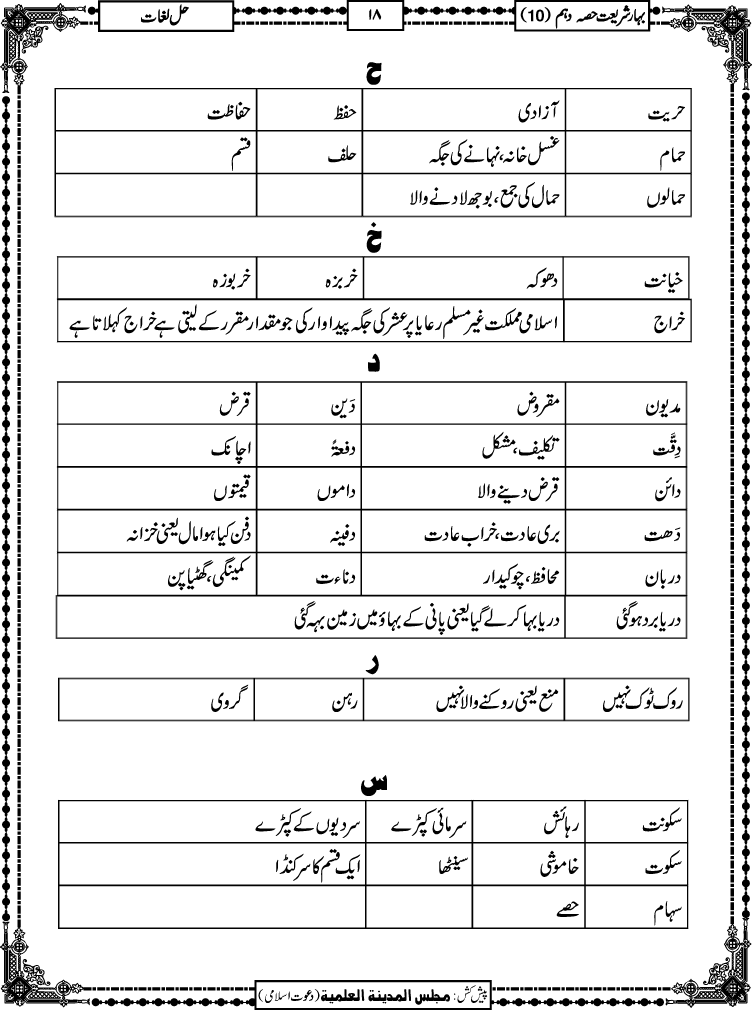 بہار شریعت حصہ دہم (10) ۱۸ حل لغات
ح
حریت آزادی حفظ حفاظت
حمام غسل خانہ، نہانے کی جگہ حلف قسم
حمالوں حمال کی جمع، بوجھ لادنے والا
خ
خیانت دھوکہ خربزہ خربوزہ
خراج اسلامی مملکت غیر مسلم رعایا پر عشر کی جگہ پیداوار کی جو مقدار مقرر کے لیتی ہے خراج کہلاتا ہے
د
مدیون مقروض دَین قرض
دِقَّت تکلیف، مشکل دفعۃً اچانک
دائن قرض دینے والا داموں قیمتوں
دَھت بری عادت، خراب عادت دفینہ دفن کیا ہوا مال یعنی خزانہ
دربان محافظ، چوکیدار دناءت کمینگی، گھٹیا پن
دریا برد ہوگئی دریا بہا کر لے گیا یعنی پانی کے بہاؤ میں زمین بہہ گئی
ر
روک ٹوک نہیں منع یعنی روکنے والا نہیں رہن گروی
س
سکونت رہائش سرمائی کپڑے سردیوں کے کپڑے
سکوت خاموشی سینٹھا ایک قسم کا سرکنڈا
سہام حصے
پیش کش: مجلس المدینة العلمیة (دعوت اسلامی)